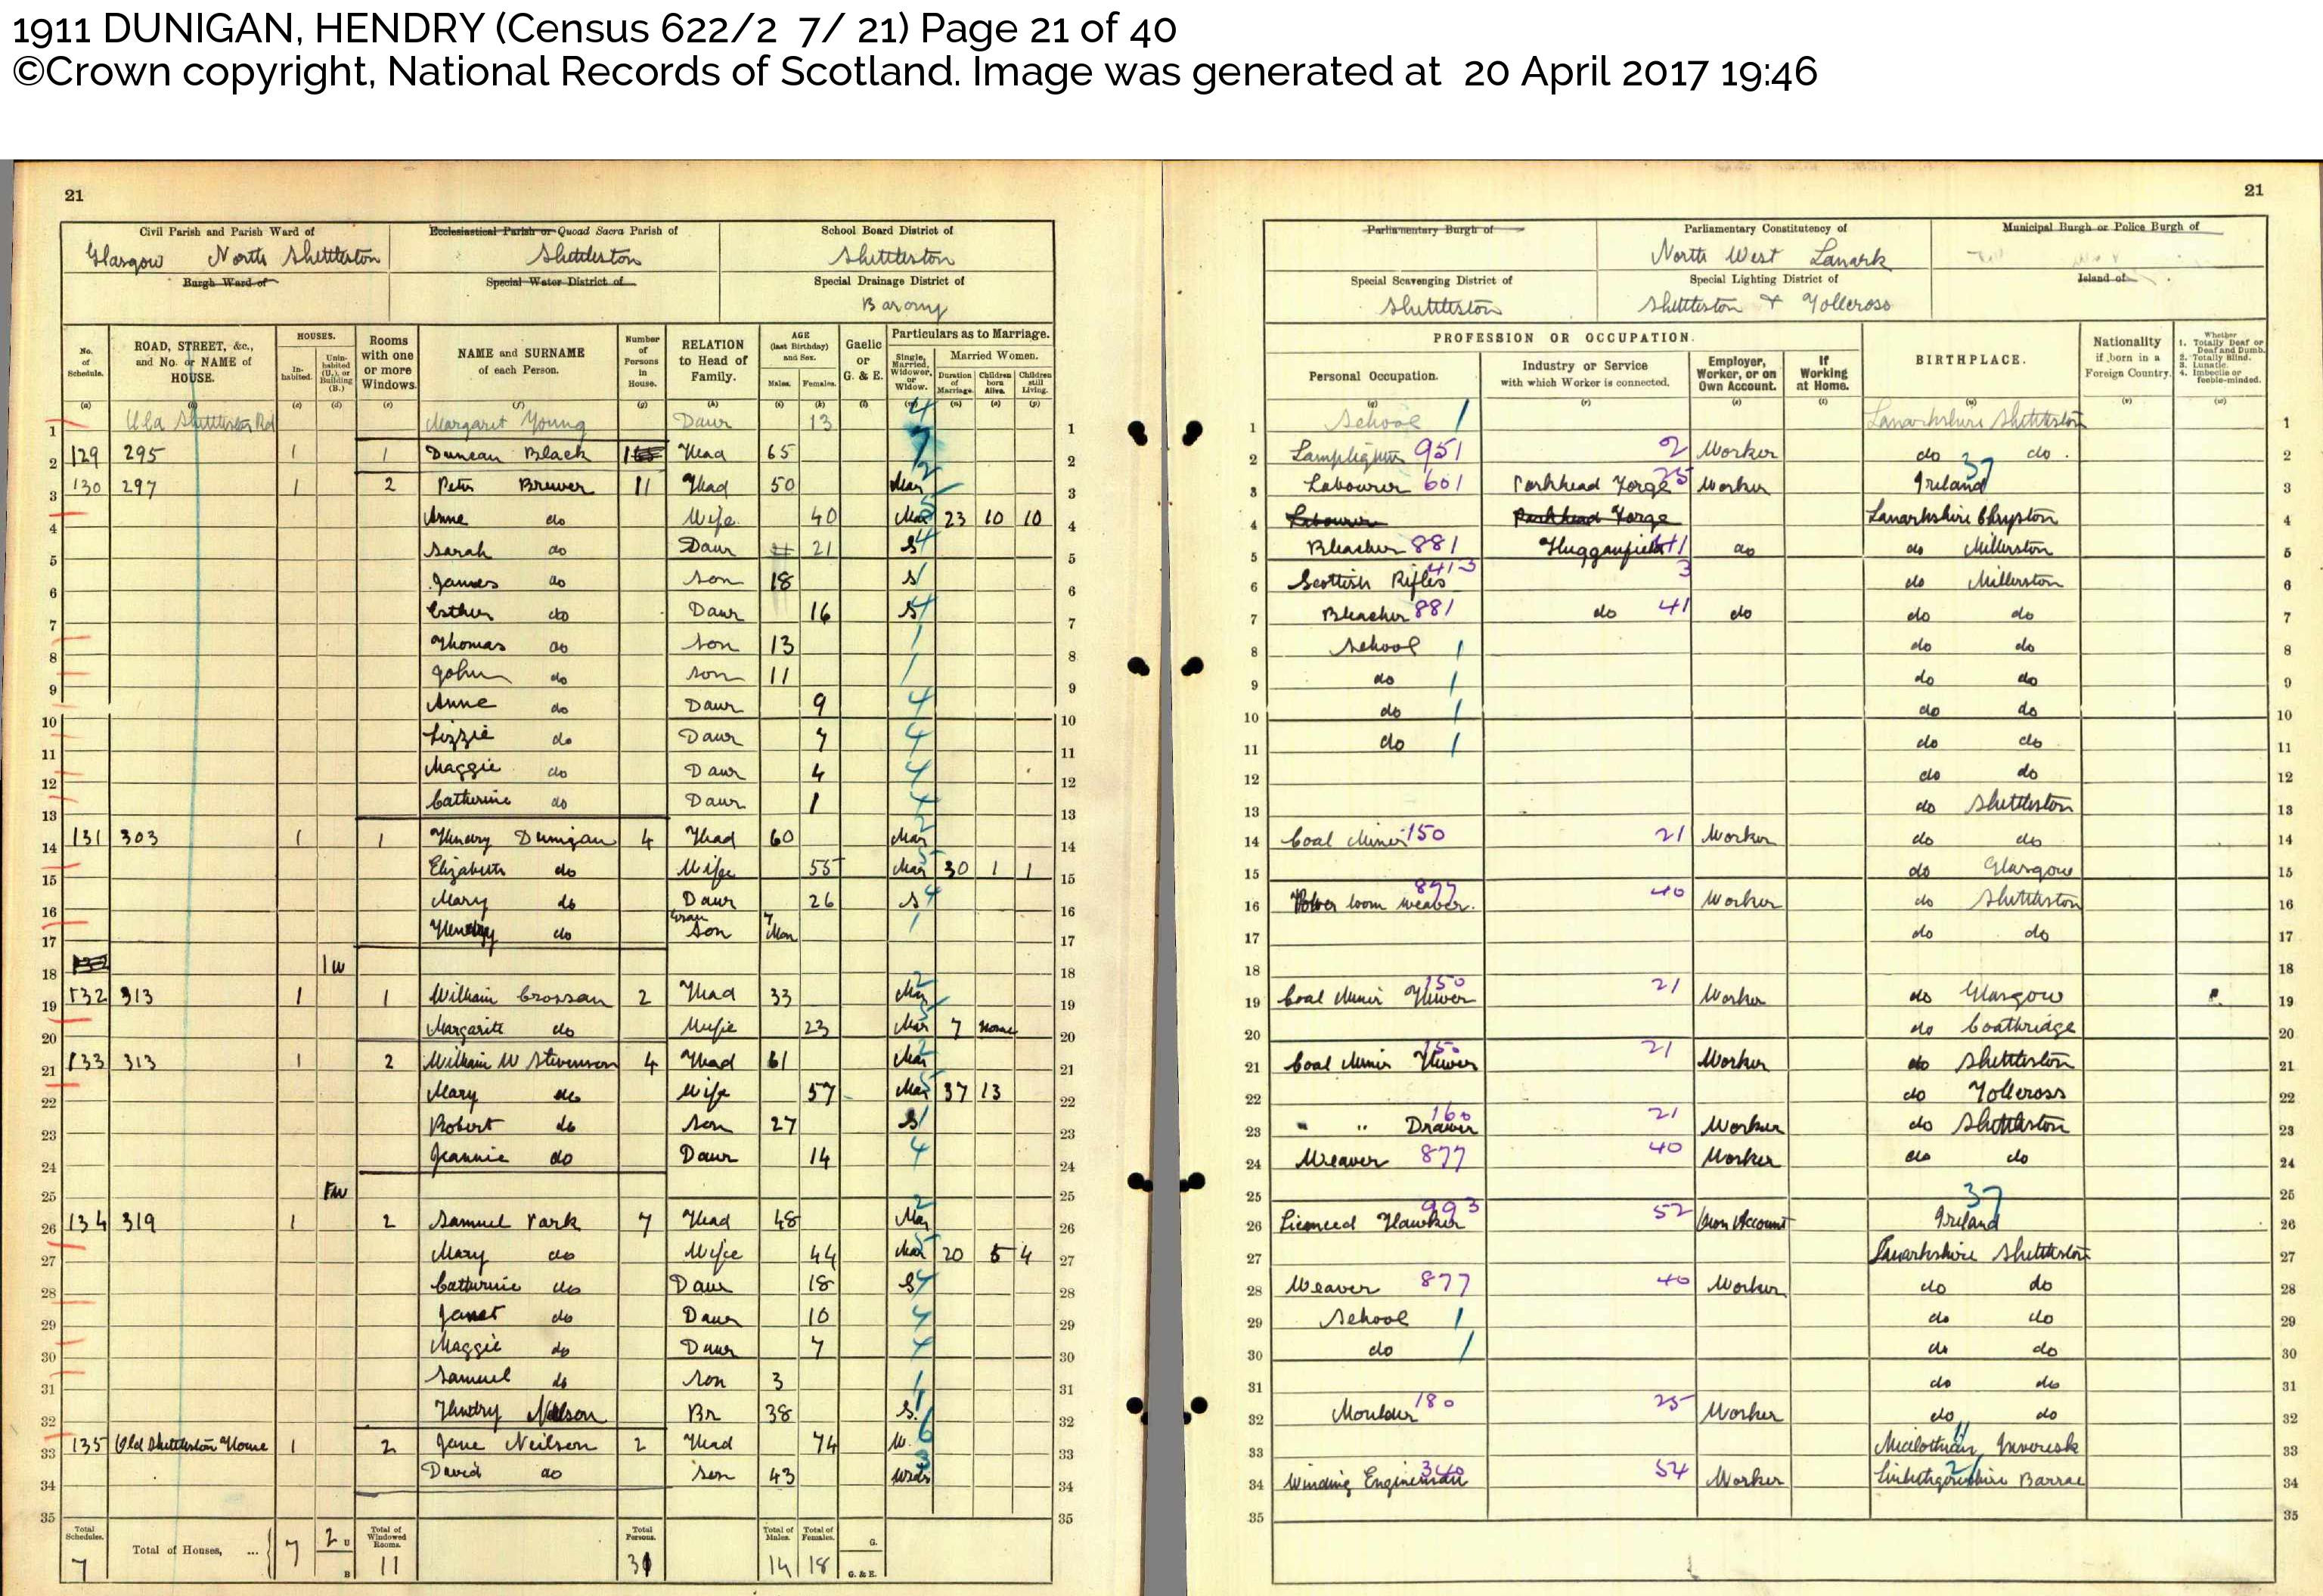 1911 DUNIGAN, HENDRY (Census 622/2 7/ 21) Page 21 of 40
©Crown copyright, National Records of Scotland. Image was generated at 20 April 2017 19:46
21 21
Civil Parish and Parish Ward of Ecclesiastical Parish or Quoad Sacra Parish of School Board District of Parliamentary Burgh of Parliamentary Constitutency of Municipal Burgh or Police Burgh of
Glasgow North Shettleston Shettleston Shettleston North West Lanark
Burgh Ward of Special Water District of Special Drainage District of Special Scavenging District of Special Lighting District of Island of
Barony Shettleston Shettleston & Tollcross
No. of Schedule. ROAD, STREET, &c., and No. or NAME of HOUSE. HOUSES. In-habited. Unin-habited (U.), or Building (B.) Rooms with one or more Windows. NAME and SURNAME of each Person. Number of Persons in House. RELATION to Head of Family. AGE (last Birthday) and Sex. Males. Females. Gaelic or G. & E. Particulars as to Marriage. Single, Married, Widower, or Widow. Married Women. Duration of Marriage. Children born Alive. Children still Living.
PROFESSION OR OCCUPATION. Personal Occupation. Industry or Service with which Worker is connected. Employer, Worker, or on Own Account. If Working at Home. BIRTHPLACE. Nationality if born in a Foreign Country. Whether 1. Totally Deaf or Deaf and Dumb. 2. Totally Blind. 3. Lunatic. 4. Imbecile or feeble-minded.
1 Shettleston Rd Margaret Young Daur 13 4 School 1 Lanarkshire Shettleston 1
2 129 295 1 1 Duncan Black 1 Head 65 7 Lamplighter 951 2 Worker do do 2
3 130 297 1 2 Peter Brewer 11 Head 50 Mar 2 Labourer 601 Parkhead Forge 25 Worker Ireland 37 3
4 Anne do Wife 40 Mar 5 23 10 10 Labourer Parkhead Forge Lanarkshire Chryston 4
5 Sarah do Daur 21 S 4 Bleacher 881 Hugganfield 41 do do Millerston 5
6 James do Son 18 S 1 Scottish Rifles 413 3 do Millerston 6
7 Esther do Daur 16 S 4 Bleacher 881 do 41 do do do 7
8 Thomas do Son 13 1 School 1 do do 8
9 John do Son 11 1 do 1 do do 9
10 Anne do Daur 9 4 do 1 do do 10
11 Lizzie do Daur 7 4 do 1 do do 11
12 Maggie do Daur 4 4 do do 12
13 Catherine do Daur 1 4 do Shettleston 13
14 131 303 1 1 Hendry Dunigan 4 Head 60 Mar 2 Coal Miner 150 21 Worker do do 14
15 Elizabeth do Wife 55 Mar 5 30 1 1 do Glasgow 15
16 Mary do Daur 26 S 4 Power loom weaver. 877 40 Worker do Shettleston 16
17 Hendry do Gran Son 7 Mon 1 do do 17
18 132 1 U 18
19 132 313 1 1 William Crossan 2 Head 33 Mar 2 Coal Miner Hewer 150 21 Worker do Glasgow 19
20 Margaret do Wife 23 Mar 5 7 None do Coatbridge 20
21 133 313 1 2 William W Stevenson 4 Head 61 Mar 2 Coal Miner Hewer 150 21 Worker do Shettleston 21
22 Mary do Wife 57 Mar 5 37 13 do Tollcross 22
23 Robert do Son 27 S 1 " " Drawer 160 21 Worker do Shettleston 23
24 Jeannie do Daur 14 4 Weaver 877 40 Worker do do 24
25 1 U 25
26 134 319 1 2 Samuel Park 7 Head 48 Mar 2 Licenced Hawker 993 52 Own Account Ireland 37 26
27 Mary do Wife 44 Mar 5 20 5 4 Lanarkshire Shettleston 27
28 Catherine do Daur 18 S 4 Weaver 877 40 Worker do do 28
29 Janet do Daur 10 4 School 1 do do 29
30 Maggie do Daur 7 4 do 1 do do 30
31 Samuel do Son 3 1 do do 31
32 Hendry Neilson Br 38 S. 1 Moulder 180 25 Worker do do 32
33 135 Old Shettleston House 1 2 Jane Neilson 2 Head 74 W. 6 Midlothian Inveresk 11 33
34 David do Son 43 3 Winding Engineman 340 54 Worker Linlithgowshire 21 34
35 35
Total Schedules. 7 Total of Houses, ... 7 2 U B Total of Windowed Rooms. 11 Total Persons. 31 Total of Males. 14 Total of Females. 18 G. G. & E.